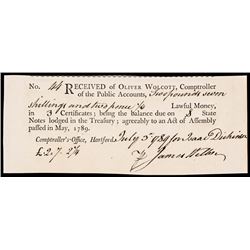 No. 44 RECEIVED of OLIVER WOLCOTT, Comptroller
of the Public Accounts, Two pounds seven
shillings and two pence ¼ Lawful Money,
in 3 Certificates; being the Balance due on 8 State
Notes lodged in the Treasury; agreeably to an Act of Assembly
passed in May, 1789.
Comptroller's-Office, Hartford July 3 1789 for Isaac Dickinson
£2.7.2¼ James Wells